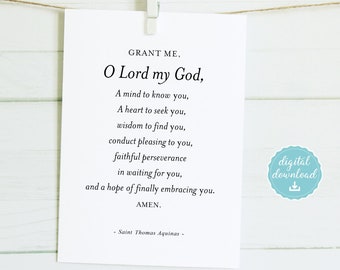 GRANT ME,
O Lord my God,
A mind to know you,
A heart to seek you,
wisdom to find you,
conduct pleasing to you,
faithful perseverance
in waiting for you,
and a hope of finally embracing you.
AMEN.
- Saint Thomas Aquinas -
digital
download